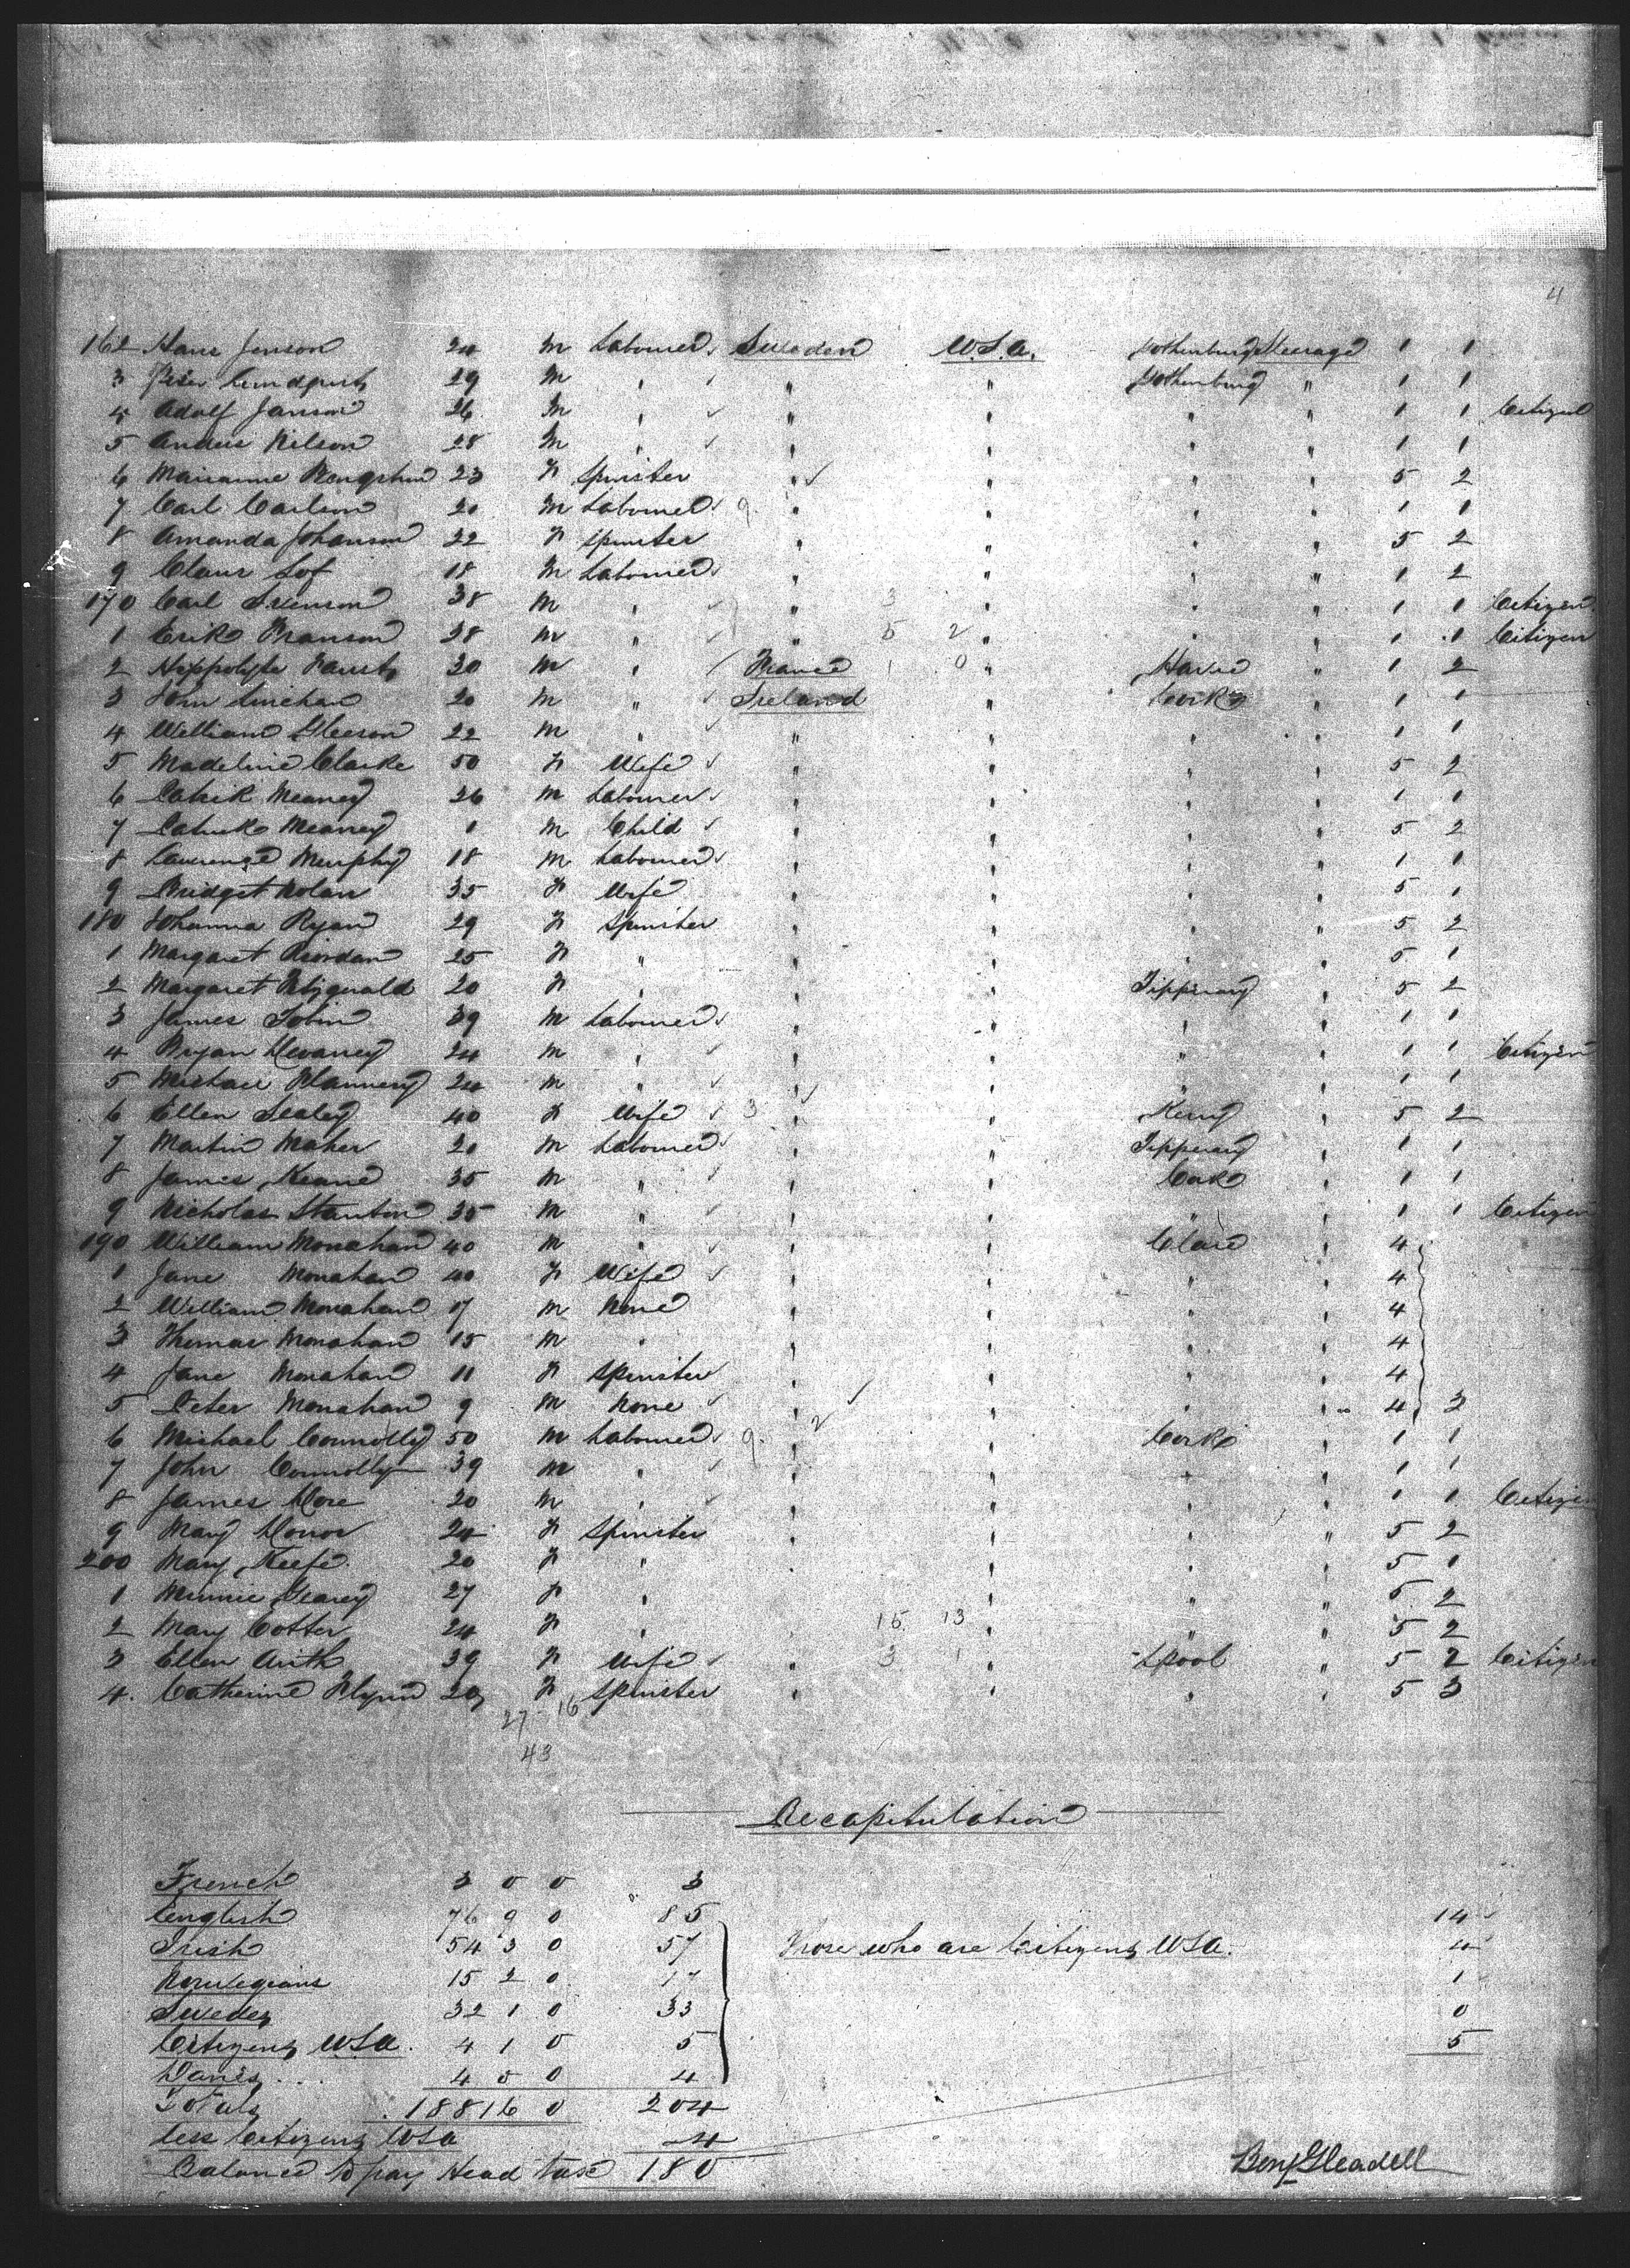 4
162 Hans Jenson 24 M Labourer Sweden U.S.A. Gothenburg Steerage 1 1
3 Peter Lundquist 29 M " " " Gothenburg " 1 1
4 Adolf Janson 26 M " " " " " 1 1 Citizen
5 Andus Nilson 28 M " " " " " 1 1
6 Marianne 23 F Spinster " " " " 5 2
7 Carl Carlson 20 M Labourer " " " " 1 1
8 Amanda Johanson 22 F Spinster " " " " 5 2
9 Claus Lof 18 M Labourer " " " " 1 2
170 Carl Svenson 38 M " " " " " 1 1 Citizen
1 Erik Franson 28 M " " " " " 1 1 Citizen
2 Hippolyte 30 M " France " Havre " 1 2
3 John Linehan 20 M " Ireland " Cork " 1 1
4 William Gleeson 22 M " " " " " 1 1
5 Madeline Clarke 50 F Wife " " " " 5 2
6 Patrik Meaney 26 M Labourer " " " " 1 1
7 Patrick Meaney 1 M Child " " " " 5 2
8 Laurence Murphy 18 M Labourer " " " " 1 1
9 Bridget Nolan 35 F Wife " " " " 5 1
180 Johanna Ryan 29 F Spinster " " " " 5 2
1 Margaret Riordan 25 F " " " " " 5 1
2 Margaret Fitzgerald 20 F " " " Tipperary " 5 2
3 James Tobin 39 M Labourer " " " " 1 1
4 Bryan Devaney 24 M " " " " " 1 1 Citizen
5 Michael Flannery 24 M " " " " " 1 1
6 Ellen Sealey 40 F Wife 3 " " Kerry " 5 2
7 Martin Maher 20 M Labourer " " Tipperary " 1 1
8 James Keane 35 M " " " Cork " 1 1
9 Nicholas Stanton 35 M " " " " " 1 1 Citizen
190 William Monahan 40 M " " " Clare " 4
1 Jane Monahan 40 F Wife " " " " 4
2 William Monahan 17 M None " " " " 4
3 Thomas Monahan 15 M " " " " " 4
4 Jane Monahan 11 F Spinster " " " " 4
5 Peter Monahan 9 M None " " " " 4 3
6 Michael Connolly 50 M Labourer 9 " " Cork " 1 1
7 John Connolly 39 M " " " " " 1 1
8 James Dore 20 M " " " " " 1 1 Citizen
9 Mary Conor 24 F Spinster " " " " 5 2
200 Mary Keefe 20 F " " " " " 5 1
1 Minnie Geary 27 F " " " " " 5 2
2 Mary Cotter 24 F " 15 13 " " " 5 2
3 Ellen Auth 39 F Wife " 3 1 " Lpool " 5 2 Citizen
4 Catherine Flynn 20 F Spinster " " " " 5 3
27 - 16
43
Recapitulation
French 3 0 0 3
English 76 9 0 85 14
Irish 54 3 0 57 Those who are Citizens USA. 4
Norwegians 15 2 0 17 1
Swedes 32 1 0 33 0
Citizens USA. 4 1 0 5 5
Danes 4 0 0 4
Totals 188 16 0 204
Less Citizens USA
Balance to pay Head tax 180
Benj Gleadell